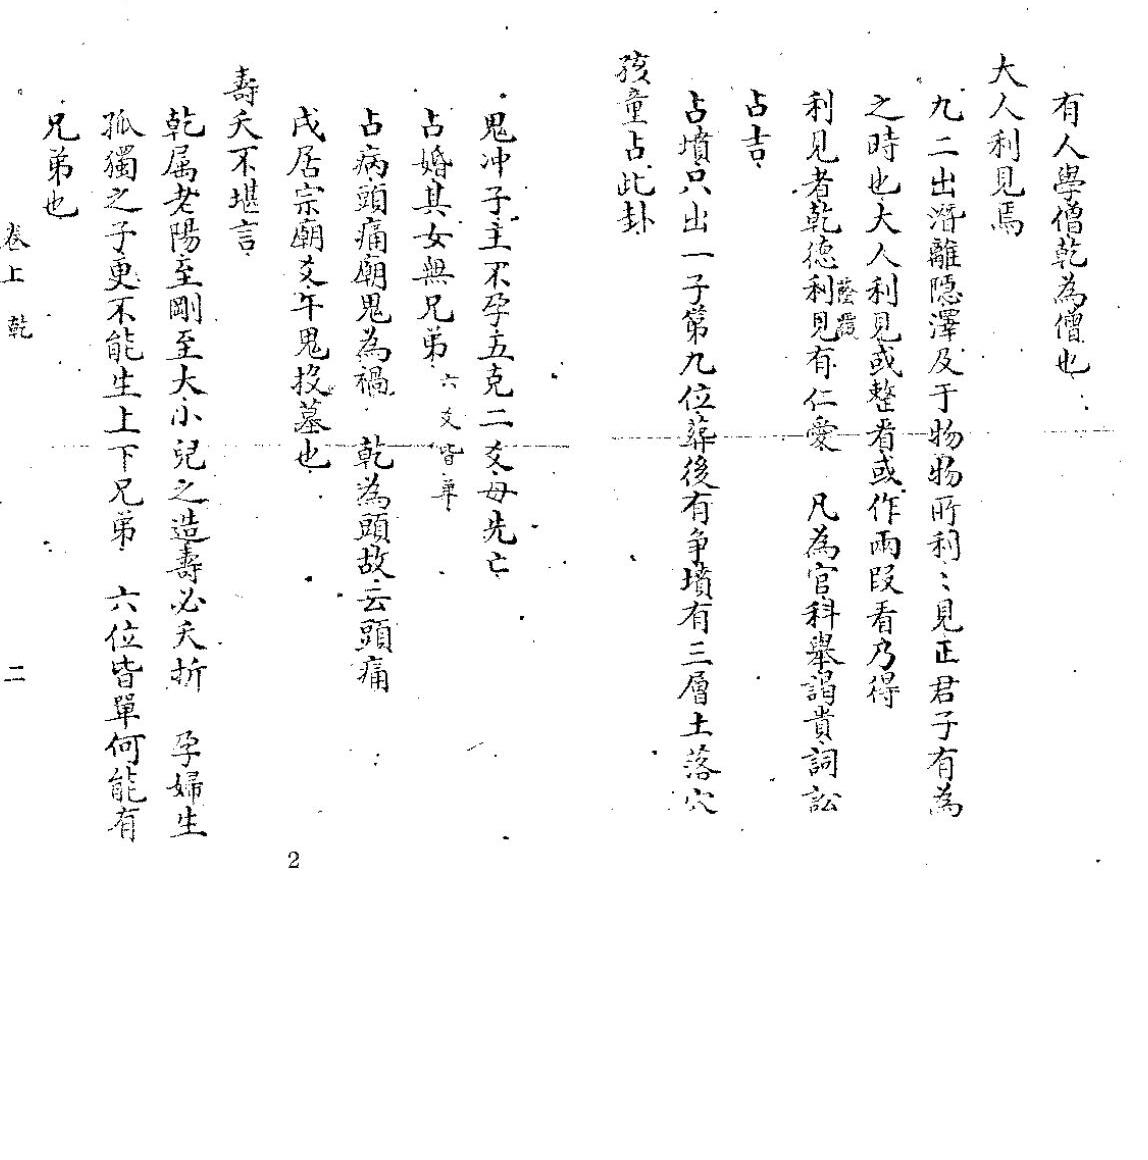 有人學僧乾為僧也
大人利見焉
九二出潛離隱澤及于物物所利〻見正君子有為
之時也大人利見或整看或作兩段看乃得
利見者乾德利見有仁愛 凡為官科舉謁貴詞訟
蔭覆
占吉
占墳只出一子第九位葬後有争墳有三層土落穴
孩童占此卦
鬼冲子主不孕五克二爻母先亡
占婚其女無兄弟 六爻皆單
占病頭痛廟鬼為禍 乾為頭故云頭痛
戌居宗廟爻午鬼投墓也
壽夭不堪言
乾属老陽至剛至大小兒之造壽必夭折 孕婦生
孤獨之子更不能生上下兄弟 六位皆單何能有
兄弟也
卷上 乾 二
2